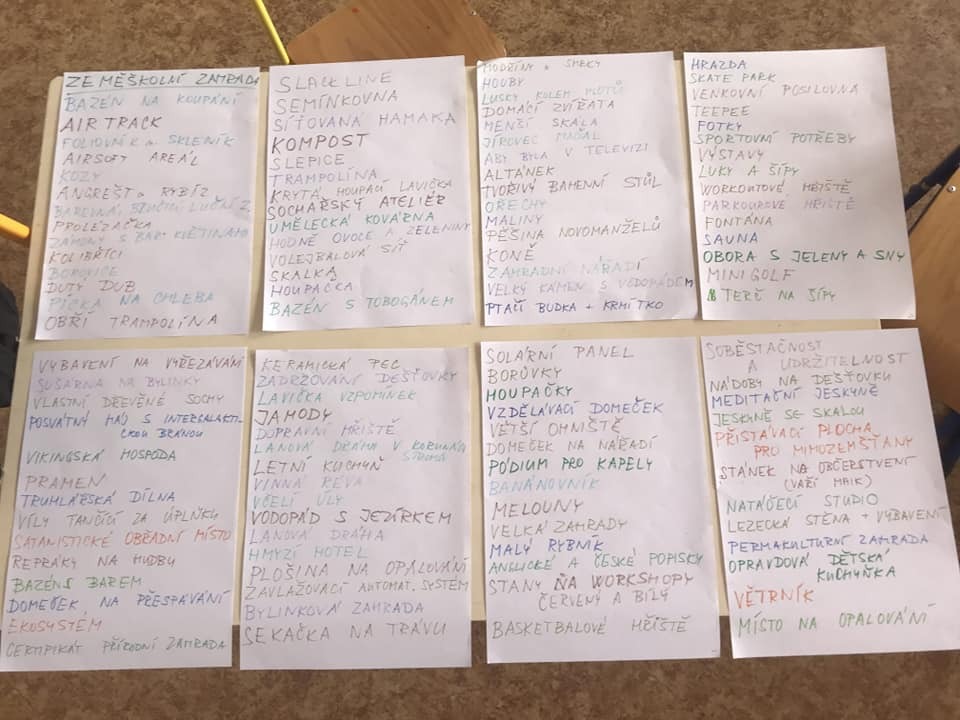 ZEMĚŠKOLNÍ ZAHRADA
BAZÉN NA KOUPÁNÍ
AIR TRACK
FOLIOVNÍK SKLENÍK
AIRSOFT AREÁL
KOZY
ANGREŠT A RYBÍZ
BAREVNÁ LUČNÍ Z.
PROLÉZAČKA
ZÁHONY S BAR. KVĚTINAMI
KOLIBŘÍCI
BOROVICE
DUTÝ DUB
PÍCKA NA CHLEBA
OBŘÍ TRAMPOLÍNA
SLACKLINE
SEMÍNKOVNA
SÍŤOVANÁ HAMAKA
KOMPOST
SLEPICE
TRAMPOLÍNA
KRYTÁ HOUPACÍ LAVIČKA
SOCHAŘSKÝ ATELIÉR
UMĚLECKÁ KOVÁRNA
HODNĚ OVOCE A ZELENINY
VOLEJBALOVÁ SÍŤ
SKALKA
HOUPAČKA
BAZÉN S TOBOGÁNEM
MODŘÍNY A SMRKY
HOUBY
LUSKY KOLEM PLOTŮ
DOMÁCÍ ZVÍŘATA
MENŠÍ SKÁLA
JÍROVEC MAĎAL
ABY BYLA V TELEVIZI
ALTÁNEK
TVOŘIVÝ BAHENNÍ STŮL
OŘECHY
MALINY
PĚŠINA NOVOMANŽELŮ
KONĚ
ZAHRADNÍ NÁŘADÍ
VELKÝ KÁMEN S VODOPÁDEM
PTAČÍ BUDKA + KRMÍTKO
HRAZDA
SKATE PARK
VENKOVNÍ POSILOVNA
TEEPEE
FOTKY
SPORTOVNÍ POTŘEBY
VÝSTAVY
LUKY A ŠÍPY
WORKOUTOVÉ HŘIŠTĚ
PARKOUROVÉ HŘIŠTĚ
FONTÁNA
SAUNA
OBORA S JELENY A SNY
MINI GOLF
TERČ NA ŠÍPY
VYBAVENÍ NA VYŘEZÁVÁNÍ
SUŠÁRNA NA BYLINKY
VLASTNÍ DŘEVĚNÉ SOCHY
POSVÁTNÝ HÁJ S INTERGALAKTI-
CKOU BRÁNOU
VIKINGSKÁ HOSPODA
PRAMEN
TRUHLÁŘSKÁ DÍLNA
VÍLY TANČÍCÍ ZA ÚPLŇKU
SATANISTICKÉ OBŘADNÍ MÍSTO
REPRÁKY NA HUDBU
BAZÉN S BAREM
DOMEČEK NA PŘESPÁVÁNÍ
EKOSYSTÉM
CERTIFIKÁT PŘÍRODNÍ ZAHRADA
KERAMICKÁ PEC
ZADRŽOVÁNÍ DEŠŤOVKY
LAVIČKA VZPOMÍNEK
JAHODY
DOPRAVNÍ HŘIŠTĚ
LANOVÁ DRÁHA V KORUNÁCH
STROMŮ
LETNÍ KUCHYŇ
VINNÁ RÉVA
VČELÍ ÚLY
VODOPÁD S JEZÍRKEM
LANOVÁ DRÁHA
HMYZÍ HOTEL
PLOŠINA NA OPALOVÁNÍ
ZAVLAŽOVACÍ AUTOMAT. SYSTÉM
BYLINKOVÁ ZAHRADA
SEKAČKA NA TRÁVU
SOLÁRNÍ PANEL
BORŮVKY
HOUPAČKY
VZDĚLÁVACÍ DOMEČEK
VĚTŠÍ OHNIŠTĚ
DOMEČEK NA NÁŘADÍ
PÓDIUM PRO KAPELY
BANÁNOVNÍK
MELOUNY
VELKÁ ZAHRADY
MALÝ RYBNÍK
ANGLICKÉ A ČESKÉ POPISKY
STANY NA WORKSHOPY
ČERVENÝ A BÍLÝ
BASKETBALOVÉ HŘIŠTĚ
SOBĚSTAČNOST
A UDRŽITELNOST
NÁDOBY NA DEŠŤOVKU
MEDITAČNÍ JESKYNĚ
JESKYNĚ SE SKÁLOU
PŘISTÁVACÍ PLOCHA
PRO MIMOZEMŠŤANY
STÁNEK NA OBČERSTVENÍ
(VAŘÍ MAIK)
NATÁČECÍ STUDIO
LEZECKÁ STĚNA + VYBAVENÍ
PERMAKULTURNÍ ZAHRADA
OPRAVDOVÁ DĚTSKÁ
KUCHYŇKA
VĚTRNÍK
MÍSTO NA OPALOVÁNÍ